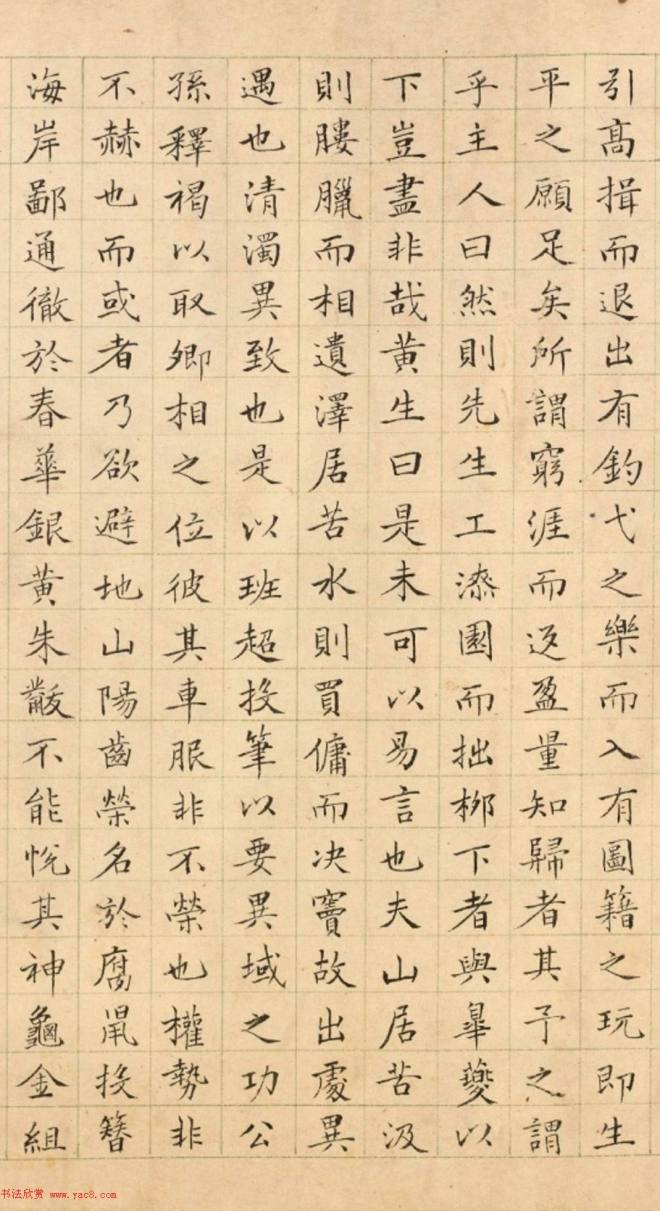 引高揖而退出有釣弋之樂而入有圖籍之玩即生
平之願足矣所謂窮涯而返盈量知歸者其予之謂
乎主人曰然則先生工漆園而拙柳下者與皋夔以
下豈盡非哉黃生曰是未可以易言也夫山居苦汲
則膢臘而相遺澤居苦水則買傭而决竇故出處異
遇也清濁異致也是以班超投筆以要異域之功公
孫釋褐以取卿相之位彼其車服非不榮也權勢非
不赫也而或者乃欲避地山陽齒榮名於腐鼠投簪
海岸鄙通徹於春華銀黃朱黻不能悅其神龜金組
书法欣赏 www.yac8.com